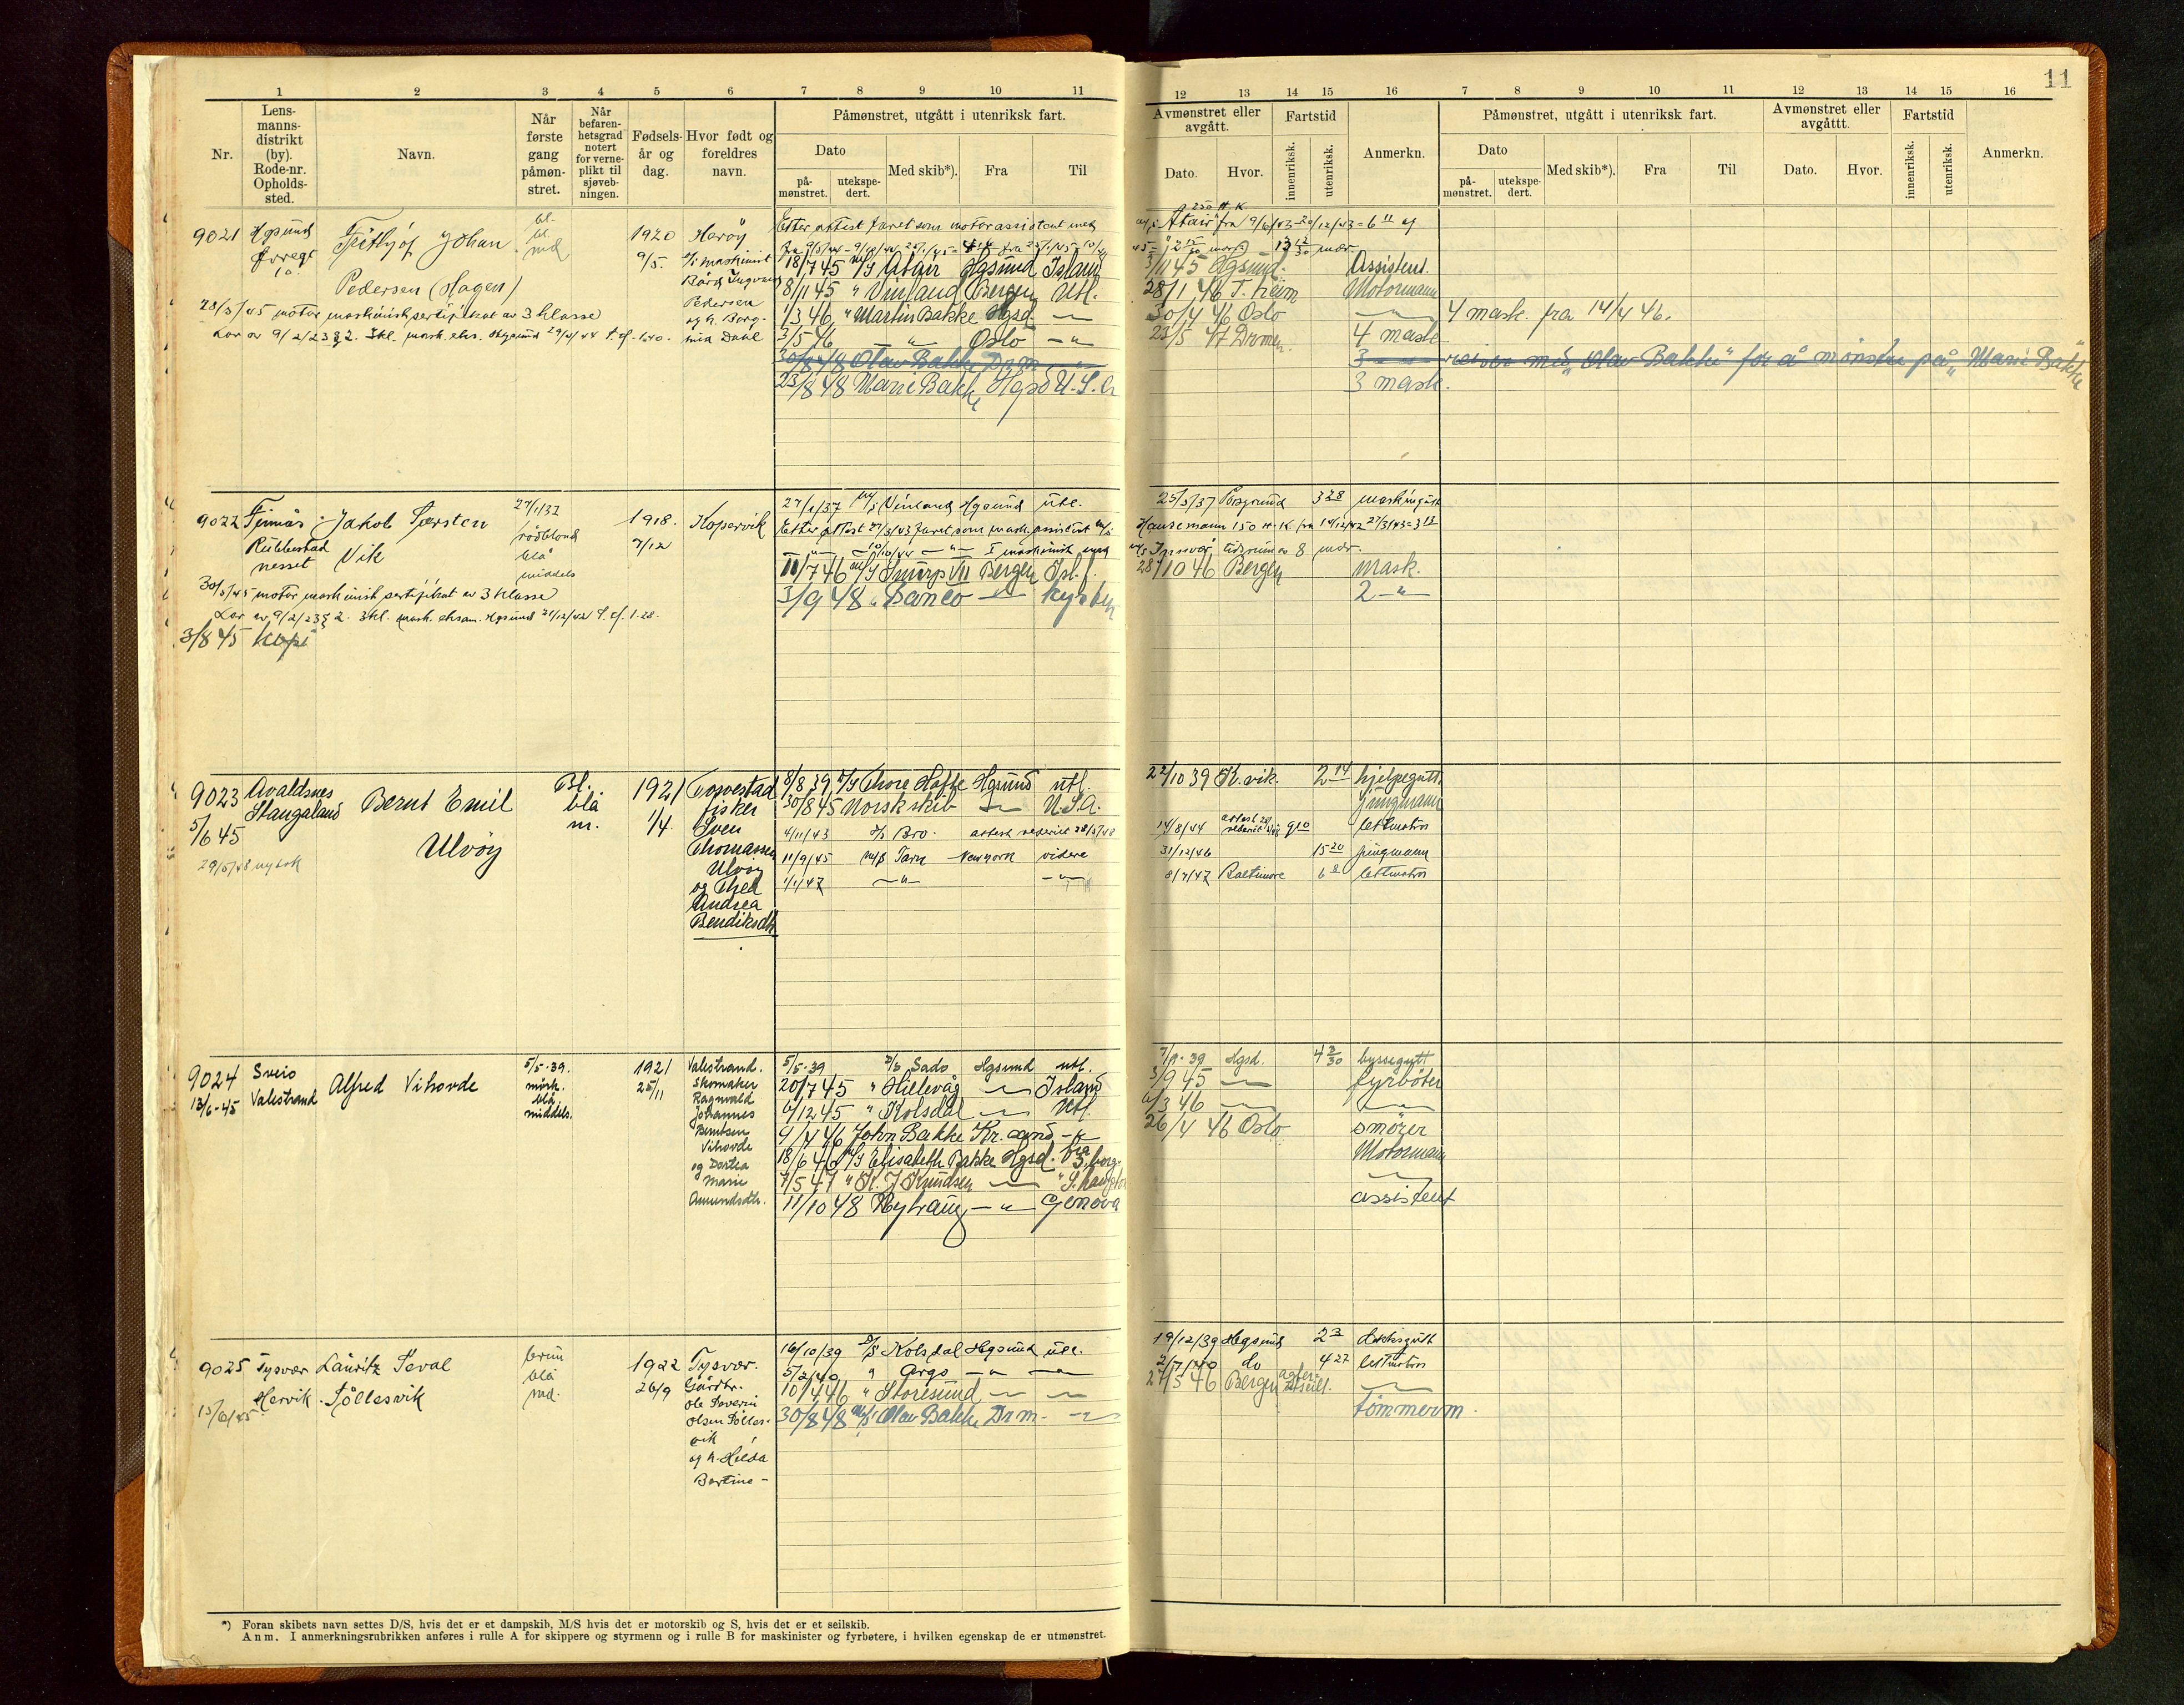 11
1 2 3 4 5 6 7 8 9 10 11
Nr.
Lens-
manns-
distrikt
(by).
Rode-nr.
Opholds-
sted.
Navn.
Når
første
gang
påmøn-
stret.
Når
befaren-
hetsgrad
notert
for verne-
plikt til
sjøveb-
ningen.
Fødsels-
år og
dag.
Hvor født og
foreldres
navn.
Påmønstret, utgått i utenriksk fart.
Dato
på-
mønstret.
utekspe-
dert.
Med skib*).
Fra
Til
12 13 14 15 16 7 8 9 10 11 12 13 14 15 16
Avmønstret eller
avgått.
Dato.
Hvor.
Fartstid
innenriksk.
utenriksk.
Anmerkn.
Påmønstret, utgått i utenriksk fart.
Dato
på-
mønstret.
utekspe-
dert.
Med skib*).
Fra
Til
Avmønstret eller
avgåttt.
Dato.
Hvor.
Fartstid
innenriksk.
utenriksk.
Anmerkn.
9021 Hgsund Johan 1920 Herøy
Pedersen (Hagen) 9/5. maskinist
Pedersen
og h. Borg-
Dahl
28/3/45 motor maskinist sertifikat av 3 klasse
Lov av 9/2/23 § 2. 3kl. mask. eks. Hgsund 29/4/44
Efter attest faret som motorassistent med
18/7 45 M/S Atair Hgsund Island 3/11 45 Hgsund. Assistent.
8/11 45 " Vinland Bergen Utl. 28/1 46 T.heim Motormann
1/3 46 " Martin Bakke Hgsd 30/4 46 Oslo 4 mask. fra 14/4 46.
3/5 46 — " — Oslo — " — 23/5 47 Drmen. 4 mask
30/8 48 Olav Bakke Drm. 3 — " — reiser med "Olav Bakke" for å mønstre på "Marie Bakke"
23/8 48 Marie Bakke Hgsd U.S.A 3 mask.
9022 Jakob Torsten 27/1/37 1918. Kopervik
Vik rødblond 7/12
nesset blå
middels
30/5/45 motor maskinist sertifikat av 3 klasse
Lov av 9/2/23 § 2. 3kl. mask. eksam. Hgsund 21/12/42
3/8 45 Kopi
27/1/37 M/S Vinland Hgsund utl. 25/5/37 Porsgrund 3 28
Efter attest 27/3/43 faret som mask.assistent M/S
Hausemann 150 H.K. fra 14/12/42 27/3/43 = 3 13
tidsrummes 8 mdr.
11/7 46 M/S VII Bergen Isl.f. 28/10 46 Bergen mask.
3/9 48 " Banco — " — 2 — " —
9023 Avaldsnes Bernt Emil Bl. 1921 Torvestad
Stangaland Ulvøy blå 1/4. fisker
5/6 45 m. Sven
29/5/48 ny bok Thomassen
Ulvøy
og Thea
Andrea
Bendiksdtr.
8/8 39 D/S Thore Hafte Hgsund utl. 22/10 39 K.vik. 2 14 hjelpegutt
30/8 45 Norsk skib — " — U.S.A. Jungmann
4/11/43 D/S Bro. attest rederiet 14/8/44 9 10 lettmatros
11/9/45 M/S Tarn New york videre 31/12/46 15 20 jungmann
1/1/47 — " — — " — 8/7/47 Baltimore 6 8 lettmatros
9024 Sveio Alfred Vihovde 5/5-39. 1921 Valestrand.
13/6-45 Valestrand mørk. 25/11 Skomaker
blå Ragnvald
middels. Johannes
Berntsen
Vihovde
og Dortea
Marie
Amundsdtr.
5/5-39 D/S Sado Hgsund utl. 7/9-39 Hgsd. 4 2/30 byssegutt
20/7 45 " Hillevåg — " — Island 3/9 45 — " — fyrbøter
4/12 45 " Kolsdal — " — Utl. 6/3 46 — " — — " —
9/4 46 John Bakke Kr.sand — " — 26/4 46 Oslo smører
18/6 46 M/S Elisabeth Bakke Hgsd. Motormann
7/5 47 " K. J Knudsen — " — — " —
11/10 48 Høyhaug — " — Genova assistent
9025 Tysvær Lauritz Teval brun 1922 Tysvær.
Hervik. Tøllesvik blå 26/9 Gårdbr.
15/6/45 md. Ole Severin
Olsen Tølles-
vik
og h. Hilda
Bertine -
16/10/39 D/S Kolsdal Hgsund utl. 19/12/39 Hgsund 2 3 dekksgutt
5/2/40 " Argo — " — — " — 2/7/40 do 4 27 lettmatros
10/4 46 " Storesund — " — — " — 27/5 46 Bergen — " —
30/8 48 M/S Olav Bakke Drm. — " — tømmerm.
*) Foran skibets navn settes D/S, hvis det er et dampskib, M/S hvis det er motorskib og S, hvis det er et seilskib.
Anm. I anmerkningsrubrikken anføres i rulle A for skippere og styrmenn og i rulle B for maskinister og fyrbøtere, i hvilken egenskap de er utmønstret.